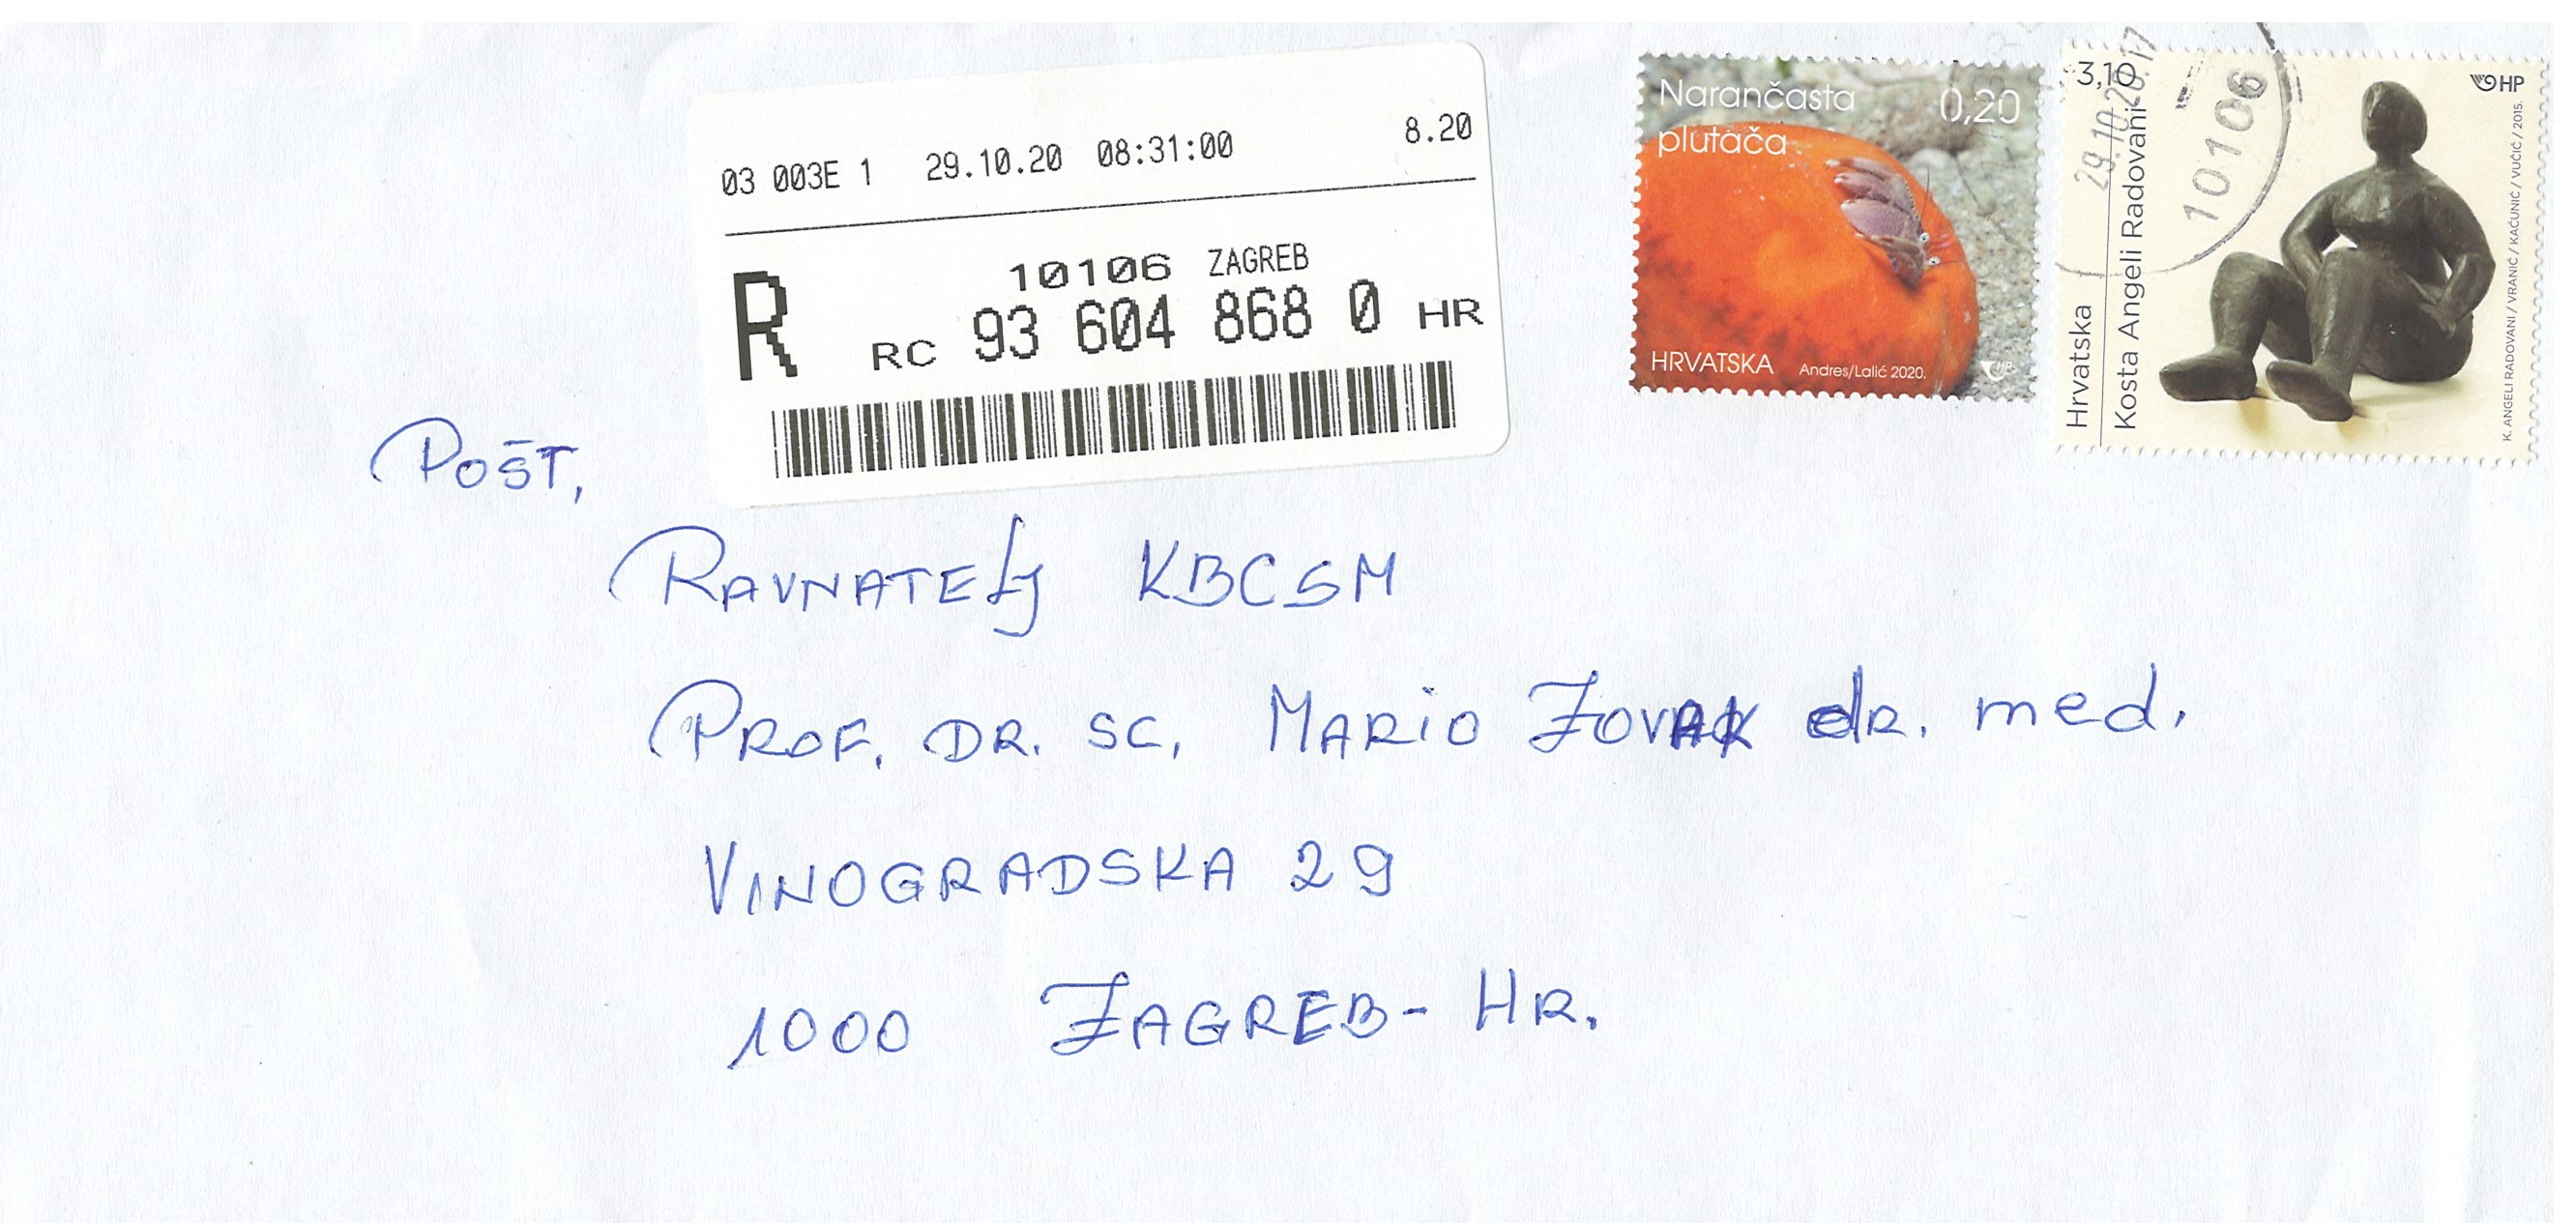 03 003E 1 29.10.20 08:31:00 8.20
10106 ZAGREB
R RC 93 604 868 0 HR
Narančasta 0,20
plutača
HRVATSKA Andres/Lalić 2020. HP
3,10
HP
Hrvatska
Kosta Angeli Radovani
K. ANGELI RADOVANI / VRANIĆ / KAĆUNIĆ / VUČIĆ / 2015.
10106
POŠT,
RAVNATELJ KBCSM
PROF. DR. SC, MARIO ZOVAK dR. med.
VINOGRADSKA 29
1000 ZAGREB- HR.